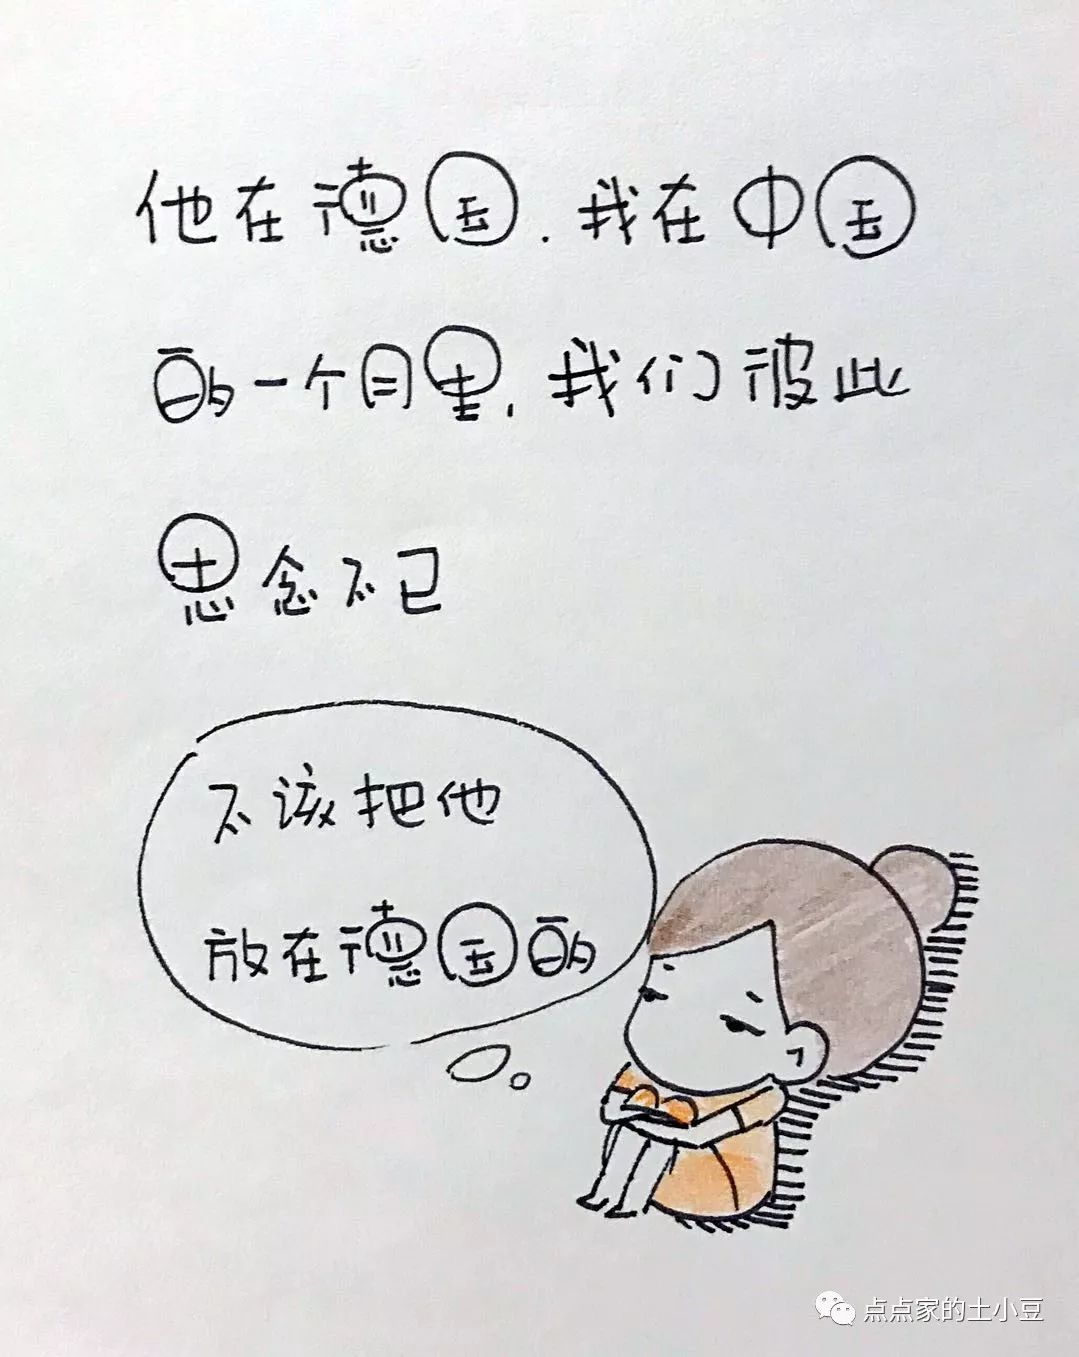 他在德国.我在中国
的一个月里,我们彼此
思念不已
不该把他
放在德国的
点点家的土小豆